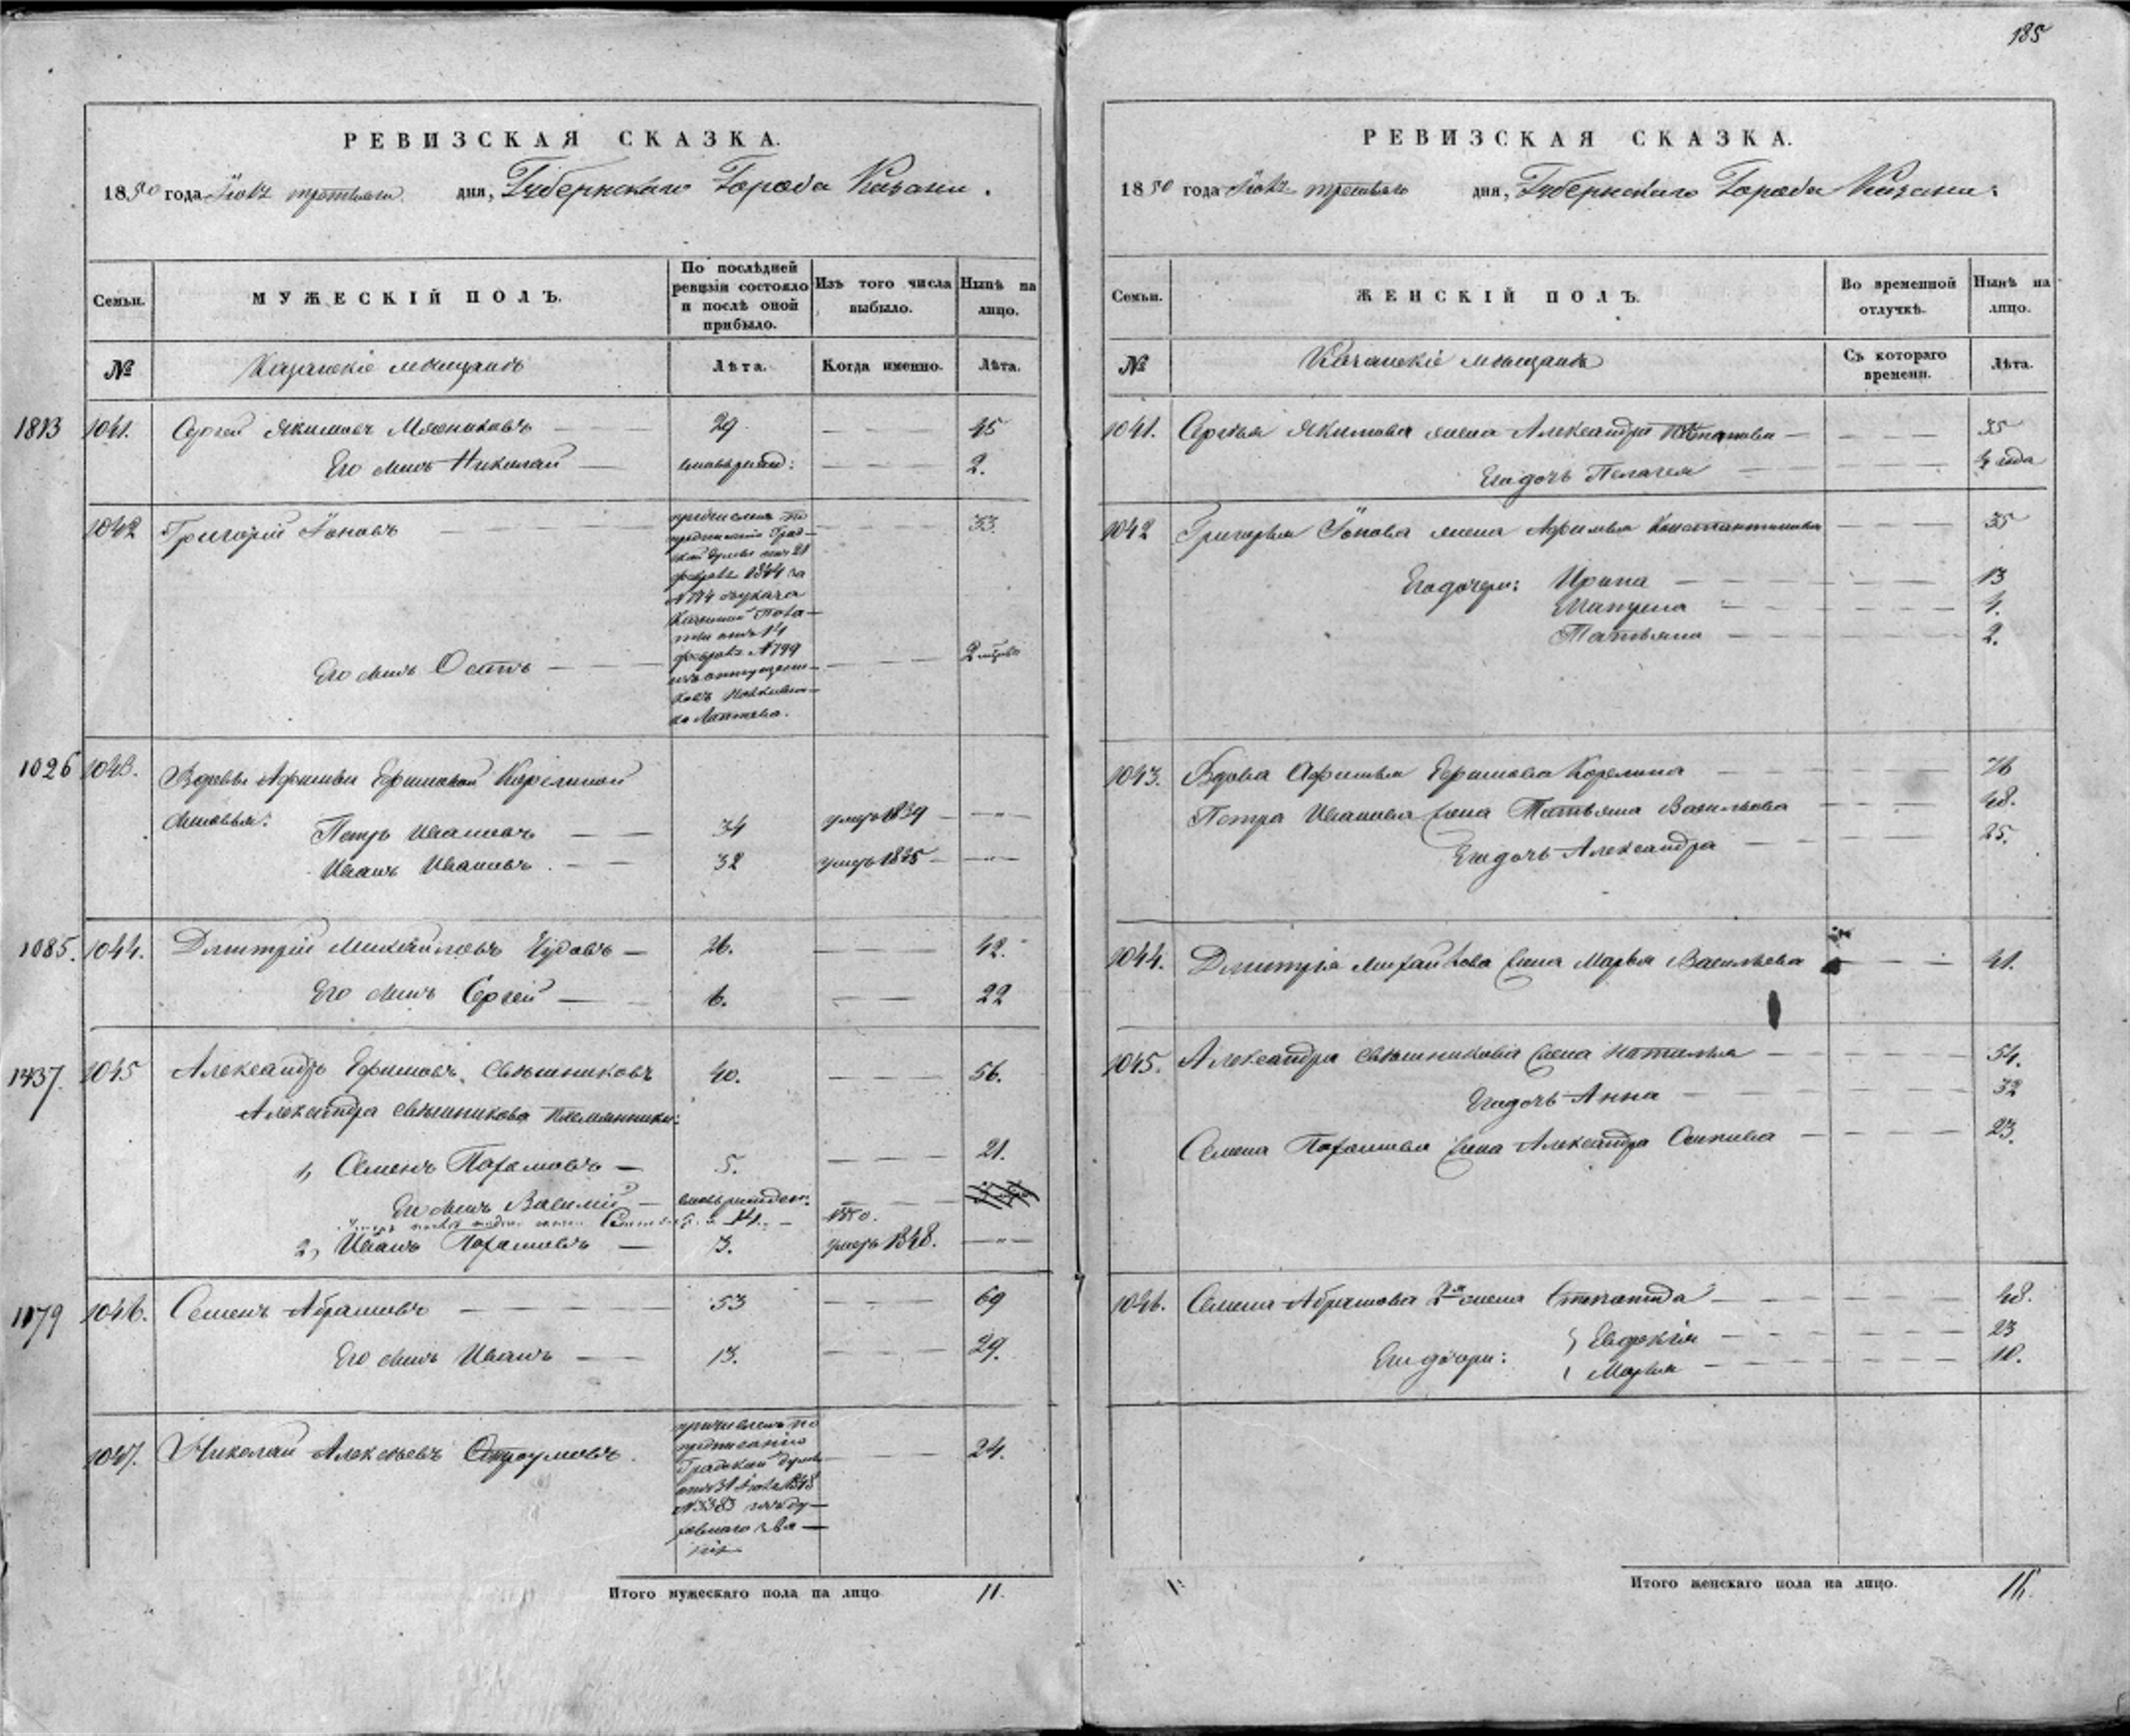 185
РЕВИЗСКАЯ СКАЗКА.
1850 года Іюля третьяго дня, Губернскаго Города Казани.
Семьи. МУЖЕСКІЙ ПОЛЪ. По послѣдней ревизіи состояло и послѣ оной прибыло. Изъ того числа выбыло. Нынѣ на лицо.
№ Казанскіе мѣщане Лѣта. Когда именно. Лѣта.
1813 1041. Сергей Якимовъ Мясниковъ 29 — — 45
Его сынъ Николай — — — 2.
1042 Григорій Іоновъ — причисленъ по — — 33.
предписанію Град-
ской думы отъ 21
февраля 1844 за
№ 174 и указа
Казенной Пала-
ты отъ 14
февраля № 799
Его сынъ Осипъ — — изъ отпущенни- — — —
ковъ
Лаптева.
1026 1043. Вдовы Афимьи Ефимовой Карелиной
сыновья: Петръ Ивановъ — — 34 умеръ 1839 — —"—
Иванъ Ивановъ — — 32 умеръ 1835 — —"—
1085. 1044. Дмитрій Михайловъ Чудовъ — 26. — — 42.
Его сынъ Сергей — — 6. — — 22
1437. 1045 Александръ Ефимовъ Свѣшниковъ 40. — — — 56.
Александра Свѣшникова племянники:
1, Семенъ Парамовъ — 5. — — — 21.
Его сынъ Василій — — —
1850.
2, Иванъ — 3. умеръ 1848. —"—
1179 1046. Семенъ Абрамовъ — — — — 53 — — — 69
Его сынъ Иванъ — — 13. — — — 29.
1047. Николай Алексѣевъ Остроумовъ. причисленъ по — — — 24.
предписанію
Градской думы
отъ 31 Іюля 1848
№ 3383 изъ ду-
ховнаго зва-
нія
Итого мужескаго пола на лицо 11.
РЕВИЗСКАЯ СКАЗКА.
1850 года Іюля третьяго дня, Губернскаго Города Казани.
Семьи. ЖЕНСКІЙ ПОЛЪ. Во временной отлучкѣ. Нынѣ на лицо.
№ Казанскіе мѣщане Съ котораго времени. Лѣта.
1041. Сергѣя Якимова жена Александра — — — — 35
Ея дочь Пелагея — — — — ½ года
1042 Григорья Іонова жена Афимья Константинова — — — 35
Его дочери: Ирина — — — — 13
Матрена — — — — 4.
Татьяна — — — — 2.
1043. Вдова Афимья Ефимова Корелина — — — — 76
Петра Иванова жена Татьяна Васильева — — — 48.
Ея дочь Александра — — — — 25.
1044. Дмитрія Михайлова жена Марья Васильева — — — 41.
1045. Александра Свѣшникова жена Наталья — — — — 54.
Ея дочь Анна — — — — 32
Семена жена Александра — — — — 23.
1046. Семена Абрамова 2я жена Степанида — — — — 48.
Ея дочери: Евдокія — — — — 23
Марья — — — — 10.
Итого женскаго пола на лицо. 16.